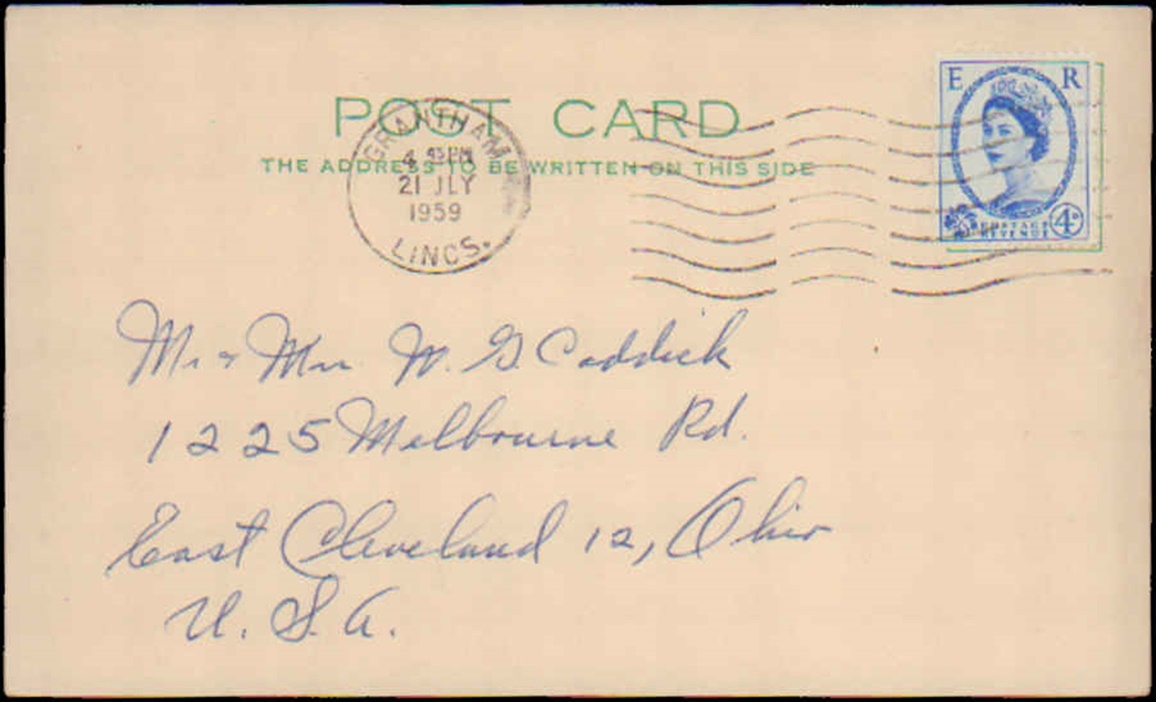 POST CARD
THE ADDRESS TO BE WRITTEN ON THIS SIDE
GRANTHAM
4 45 PM
21 JLY
1959
LINCS.
E R
POSTAGE
REVENUE
4D
Mr & Mrs W. G. Caddick
1225 Melbourne Rd.
East Cleveland 12, Ohio
U. S. A.